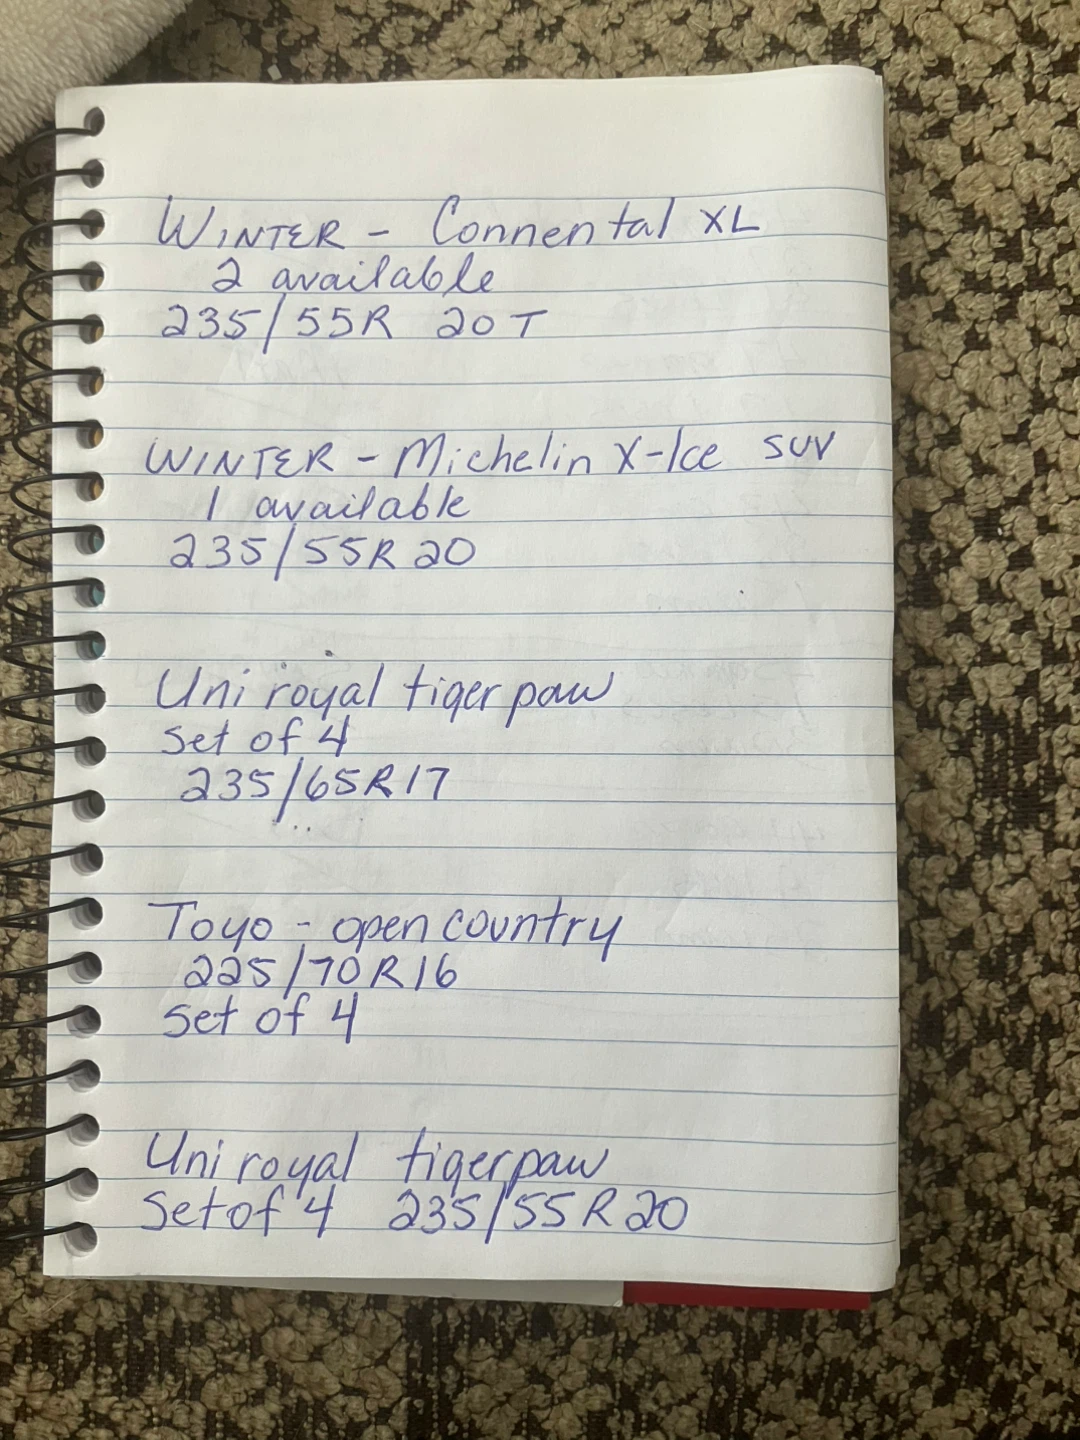 WINTER - Connental XL
2 available
235/55R 20 T
WINTER - Michelin X-Ice SUV
1 available
235/55R 20
Uniroyal tiger paw
Set of 4
235/65R17
Toyo - open country
225/70R16
Set of 4
Uniroyal tigerpaw
Set of 4 235/55R20